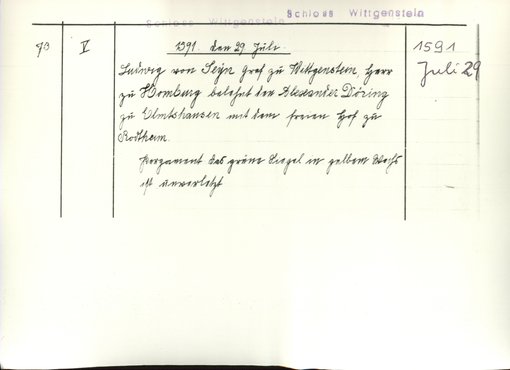 Schloss Wittgenstein
Schloss Wittgenstein
73 V 1591 den 29 Juli. 1591
Ludwig von Seyn Graf zu Wittgenstein, Herr Juli 29
zu Homburg belehnt den Alexander Döring
zu Elmshausen mit dem freien Hof zu
Rodheim.
Pergament das grüne Siegel in gelbem Wachs
ist unverletzt